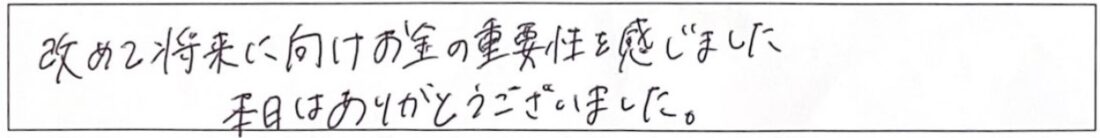 改めて将来に向けお金の重要性を感じました
本日はありがとうございました。